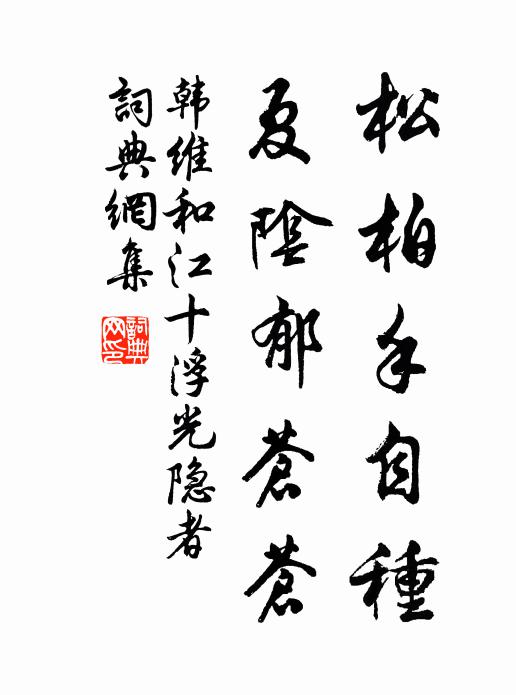 松柏手自種
夏陰郁蒼蒼
韩維和江十浮光隐者
詞典網集
詞典
网印